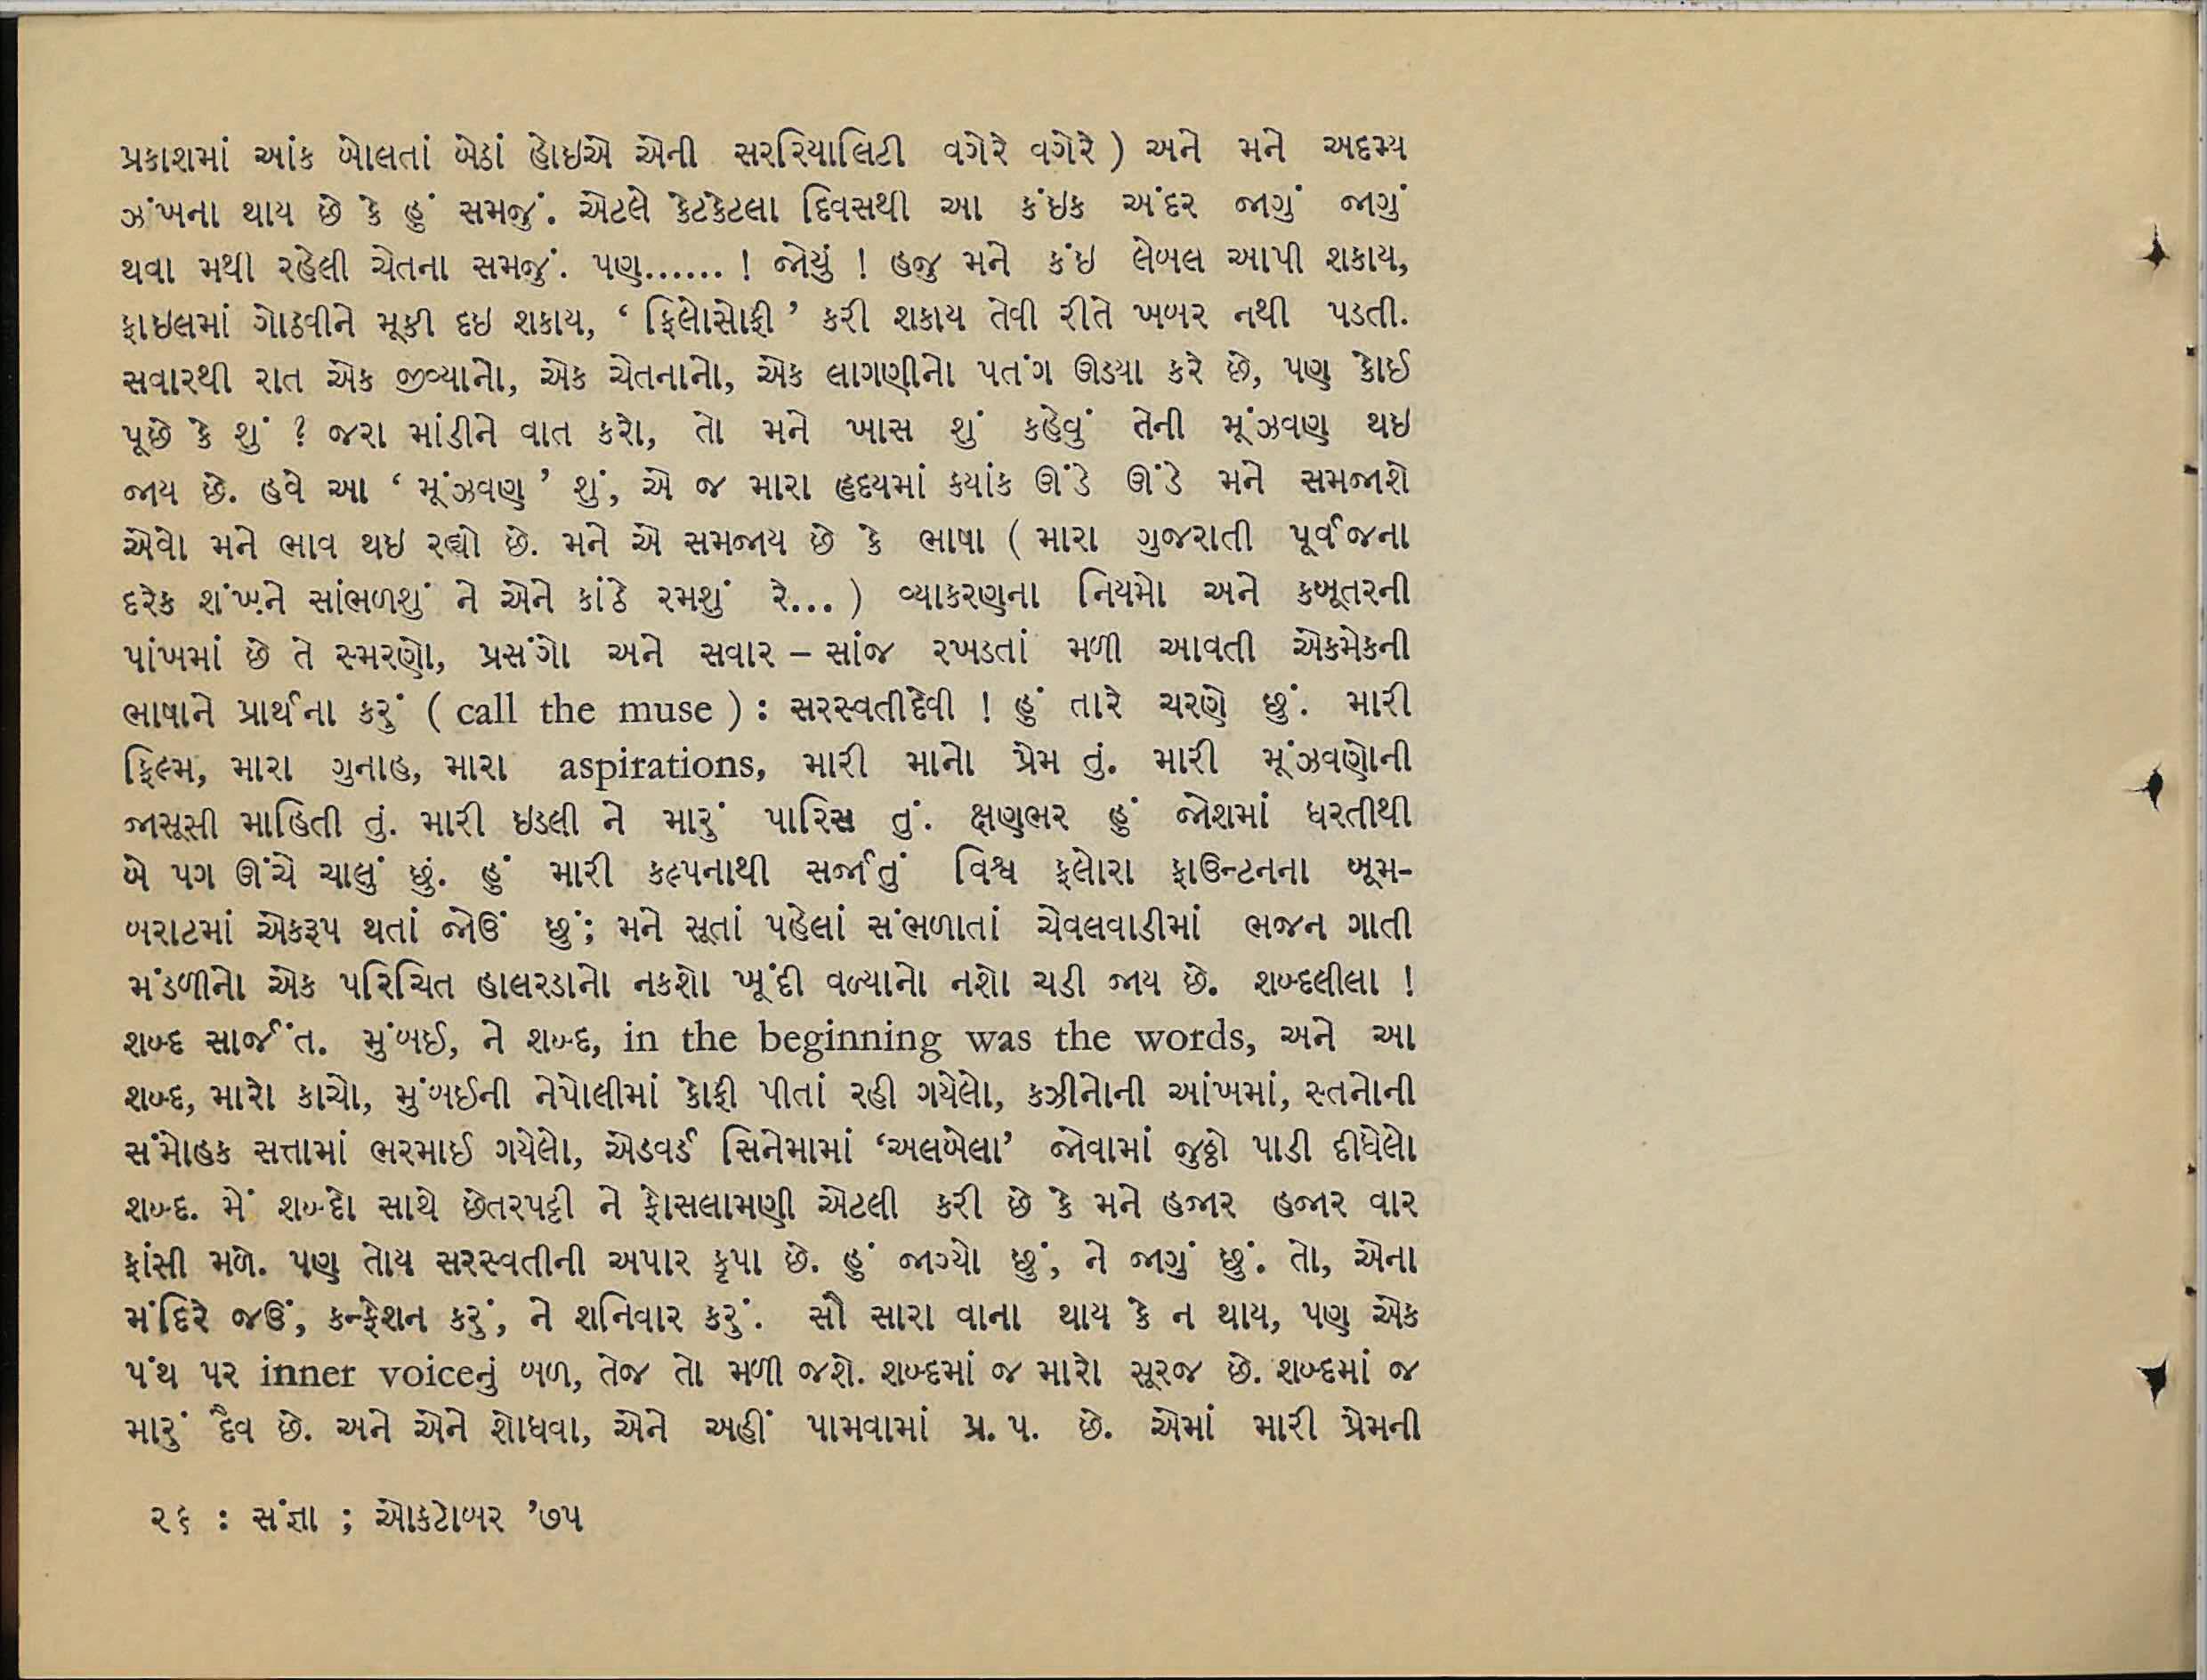 પ્રકાશમાં આંક બોલતાં બેઠાં હોઇએ એની સરરિયાલિટી વગેરે વગેરે ) અને મને અદમ્ય
ઝંખના થાય છે કે હું સમજું. એટલે કેટકેટલા દિવસથી આ કંઇક અંદર જાગું જાગું
થવા મથી રહેલી ચેતના સમજું. પણ...... ! જોયું ! હજુ મને કંઇ લેબલ આપી શકાય,
ફાઇલમાં ગોઠવીને મૂકી દઇ શકાય, ‘ ફિલોસોફી ’ કરી શકાય તેવી રીતે ખબર નથી પડતી.
સવારથી રાત એક જીવ્યાનો, એક ચેતનાનો, એક લાગણીનો પતંગ ઊડયા કરે છે, પણ કોઈ
પૂછે કે શું ? જરા માંડીને વાત કરો, તો મને ખાસ શું કહેવું તેની મૂંઝવણ થઇ
જાય છે. હવે આ ‘ મૂંઝવણ ’ શું, એ જ મારા હૃદયમાં કયાંક ઊંડે ઊંડે મને સમજાશે
એવો મને ભાવ થઇ રહ્યો છે. મને એ સમજાય છે કે ભાષા ( મારા ગુજરાતી પૂર્વજના
દરેક શંખને સાંભળશું ને એને કાંઠે રમશું રે... ) વ્યાકરણના નિયમો અને કબૂતરની
પાંખમાં છે તે સ્મરણો, પ્રસંગો અને સવાર – સાંજ રખડતાં મળી આવતી એકમેકની
ભાષાને પ્રાર્થના કરું ( call the muse ) : સરસ્વતીદેવી ! હું તારે ચરણે છું. મારી
ફિલ્મ, મારા ગુનાહ, મારા aspirations, મારી માનો પ્રેમ તું. મારી મૂંઝવણોની
જાસૂસી માહિતી તું. મારી ઇડલી ને મારું પારિસ તું. ક્ષણભર હું જોશમાં ધરતીથી
બે પગ ઊંચે ચાલું છું. હું મારી કલ્પનાથી સર્જાતું વિશ્વ ફલોરા ફાઉન્ટનના બૂમ-
બરાટમાં એકરૂપ થતાં જોઉં છું; મને સૂતાં પહેલાં સંભળાતાં ચેવલવાડીમાં ભજન ગાતી
મંડળીનો એક પરિચિત હાલરડાનો નકશો ખૂંદી વળ્યાનો નશો ચડી જાય છે. શબ્દલીલા !
શબ્દ સાર્જંત. મુંબઈ, ને શબ્દ, in the beginning was the words, અને આ
શબ્દ, મારો કાચો, મુંબઈની નેપોલીમાં કોફી પીતાં રહી ગયેલો, કઝીનોની આંખમાં, સ્તનોની
સંમોહક સત્તામાં ભરમાઈ ગયેલો, એડવર્ડ સિનેમામાં ‘અલબેલા’ જોવામાં જુઠ્ઠો પાડી દીધેલો
શબ્દ. મેં શબ્દો સાથે છેતરપટ્ટી ને ફોસલામણી એટલી કરી છે કે મને હજાર હજાર વાર
ફાંસી મળે. પણ તોય સરસ્વતીની અપાર કૃપા છે. હું જાગ્યો છું, ને જાગું છું. તો, એના
મંદિરે જઉં, કન્ફેશન કરું, ને શનિવાર કરું. સૌ સારા વાના થાય કે ન થાય, પણ એક
પંથ પર inner voiceનું બળ, તેજ તો મળી જશે. શબ્દમાં જ મારો સૂરજ છે. શબ્દમાં જ
મારું દૈવ છે. અને એને શોધવા, એને અહીં પામવામાં પ્ર. પ. છે. એમાં મારી પ્રેમની
૨૬ : સંજ્ઞા ; ઓકટોબર ’૭૫